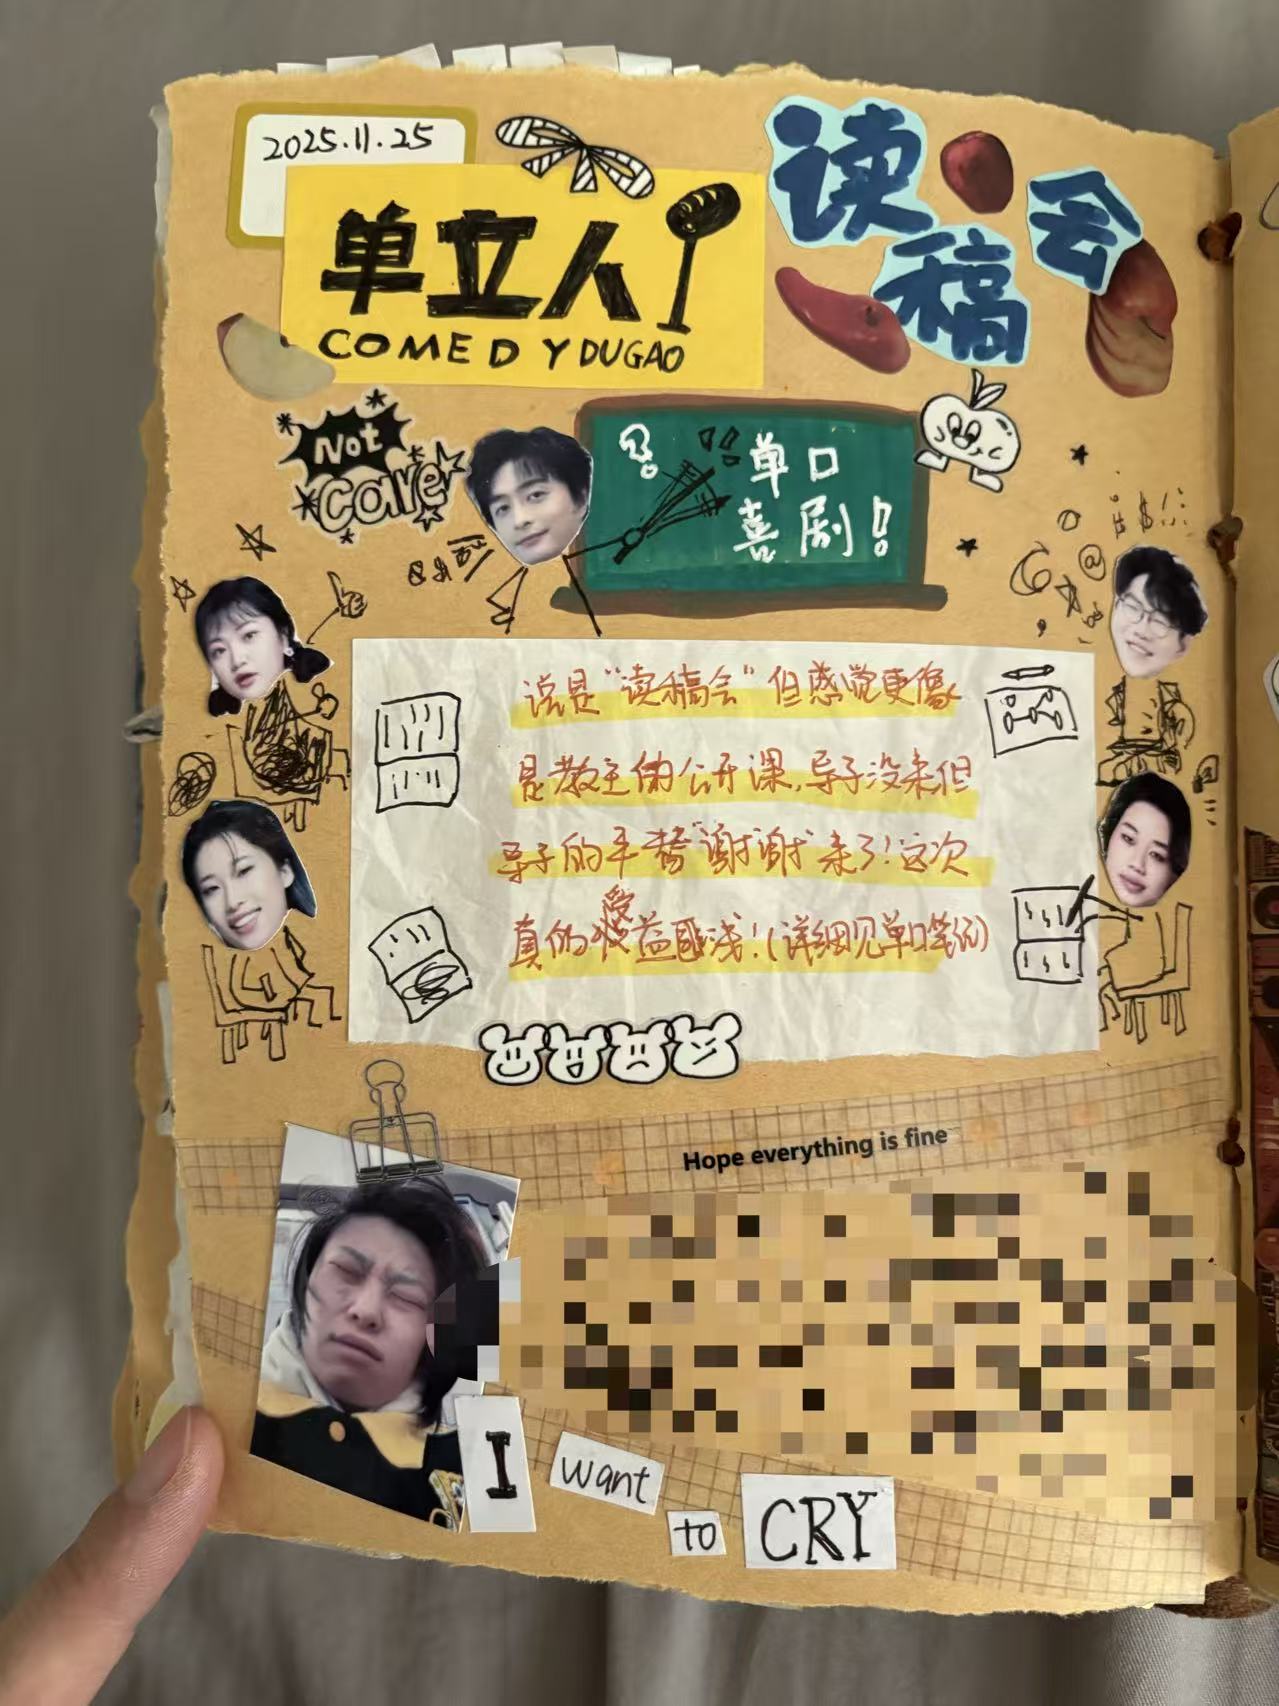 2025.11.25
单立人
COMEDY DUGAO
读稿会
Not
care
单口
喜剧！
说是“读稿会”但感觉更像
是教主的公开课，导子没来但
导子的平替“谢谢”来了！这次
真的受益匪浅！（详细见单口笔记）
Hope everything is fine
I want to CRY